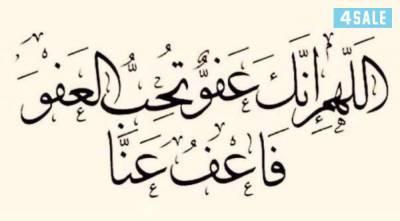 4SALE
اللَّهُمَّ إِنَّكَ عَفُوٌّ تُحِبُّ العَفْوَ
فَاعْفُ عَنَّا